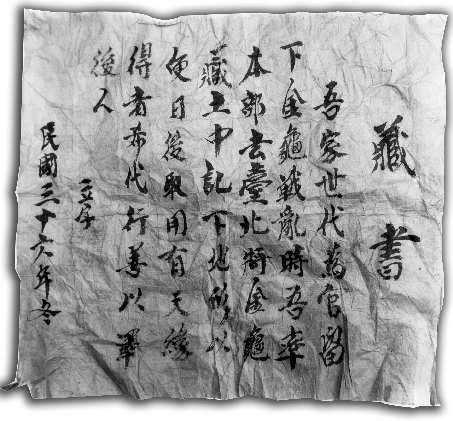 藏書
吾家世代為官留
下金龜戰亂時吾率
本部去臺北將金龜
藏土中記下地形以
便日後取用有天緣
得者亦代行善以畢
後人
立字
民國三十六年冬